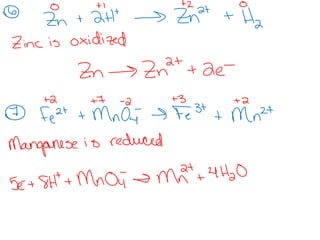 0 +1 +2 0
⑥ Zn + 2H⁺ → Zn²⁺ + H₂
Zinc is oxidized
Zn → Zn²⁺ + 2e⁻
+2 +7 -2 +3 +2
⑦ Fe²⁺ + MnO₄⁻ → Fe³⁺ + Mn²⁺
Manganese is reduced
5e⁻ + 8H⁺ + MnO₄⁻ → Mn²⁺ + 4H₂O